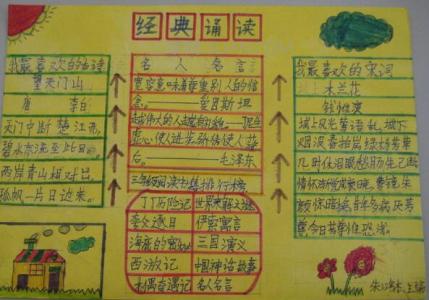 经典诵读
我最喜欢的古诗
望天门山
唐 李白
天门中断楚江开,
碧水东流至此回。
两岸青山相对出,
孤帆一片日边来。
名人名言
宽容意味着尊重别人的信
念。——爱因斯坦
虚心使人进步骄傲使人落
后。——毛泽东
三年级阅读书籍排行榜
丁丁历险记 世界未解之谜
夸父逐日 伊索寓言
海底的 三国演义
西游记 中国神话故事
木偶奇遇记 名人名言
我最喜欢的宋词
木兰花
钱惟演
城上风光莺语乱,城下
烟波春拍岸绿杨芳草
几时休泪眼愁肠先已断
情怀渐觉成衰晚,鸾镜朱
颜惊暗换昔年多病厌芳
尊今日芳尊惟恐浅